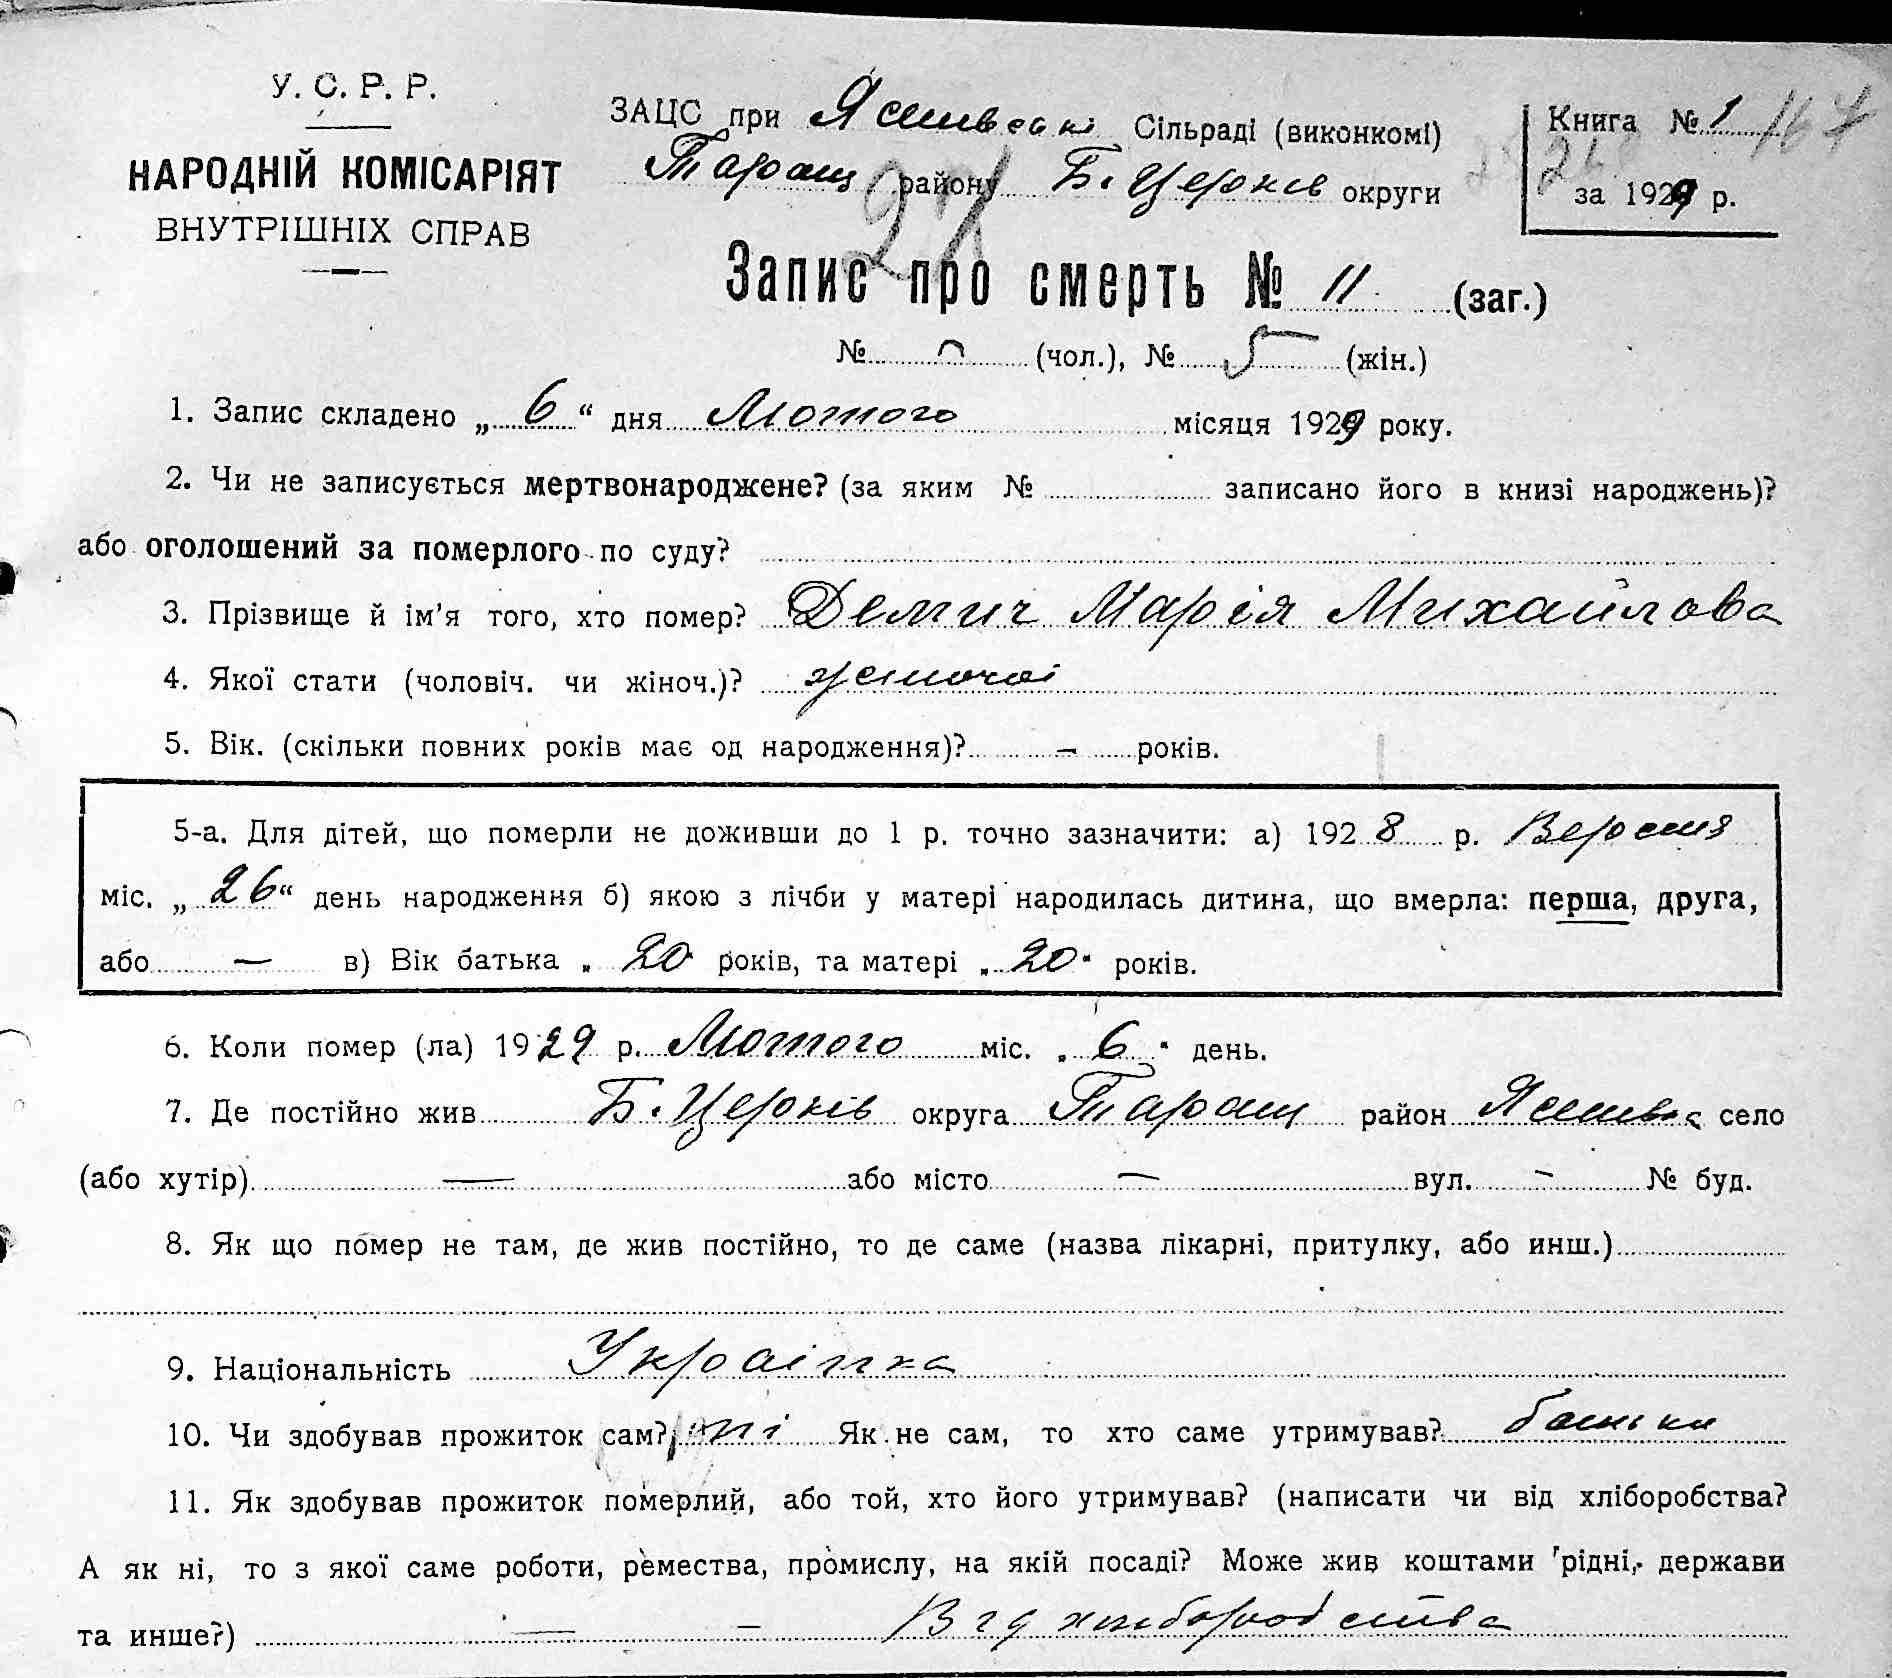 У. С. Р. Р.
НАРОДНІЙ КОМІСАРІЯТ
ВНУТРІШНІХ СПРАВ
ЗАЦС при Ясинівські Сільраді (виконкомі)
Таращ району Б. Церків округи
Книга № 1 167
за 1929 р.
27
Запис про смерть № 11 (заг.)
№ (чол.), № 5 (жін.)
1. Запис складено „ 6 “ дня Лютого місяця 1929 року.
2. Чи не записується мертвонароджене? (за яким № записано його в книзі народжень)?
або оголошений за померлого по суду?
3. Прізвище й ім'я того, хто помер? Демич Марія Михайлова
4. Якої стати (чоловіч. чи жіноч.)? жіночої
5. Вік. (скільки повних років має од народження)? – років.
5-а. Для дітей, що померли не доживши до 1 р. точно зазначити: а) 1928 р. Вересня
міс. „ 26 “ день народження б) якою з лічби у матері народилась дитина, що вмерла: перша, друга,
або — в) Вік батька „ 20 років, та матері „ 20 “ років.
6. Коли помер (ла) 1929 р. Лютого міс. „ 6 “ день.
7. Де постійно жив Б. Церків округа Таращ район село
(або хутір) — або місто — вул. – № буд.
8. Як що помер не там, де жив постійно, то де саме (назва лікарні, притулку, або инш.)
9. Національність Українка
10. Чи здобував прожиток сам? ні Як не сам, то хто саме утримував? батьки
11. Як здобував прожиток померлий, або той, хто його утримував? (написати чи від хліборобства?
А як ні, то з якої саме роботи, ремества, промислу, на якій посаді? Може жив коштами рідні, держави
та инше?) — – Від хліборобства